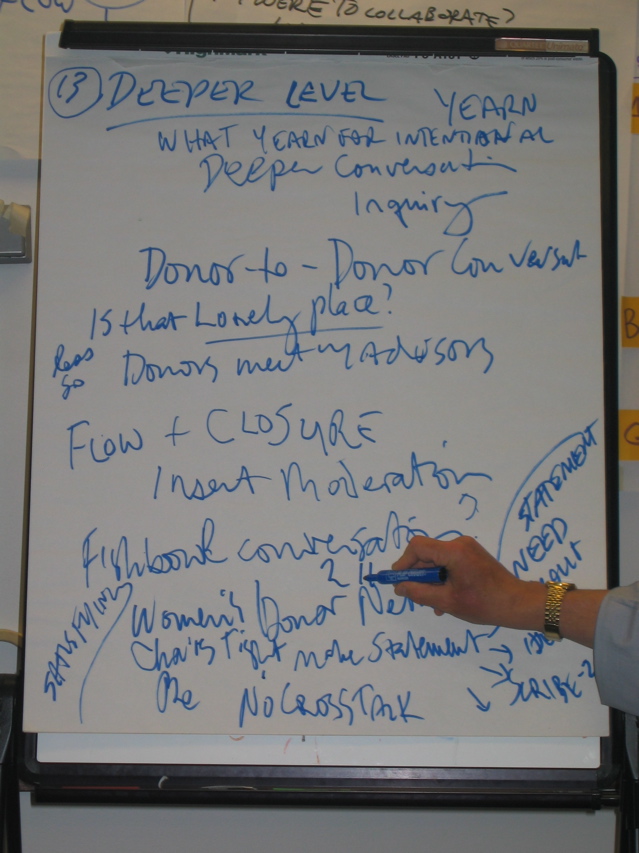 WERE TO COLLABORATE?
13 DEEPER LEVEL YEARN
WHAT YEARN FOR INTENTIONAL
Deeper Conversati
Inquiry
Donor-to-Donor Conversat
Is that Lonely place?
less so
Donors meet w Advisors
FLOW + CLOSURE
Insert Moderation
Fishbowl conversation?
2
Women's Donor Net
Chairs Tight make Statement
NO CROSSTALK
SATISFYING
STATEMENT
NEED
SCRIBE-2